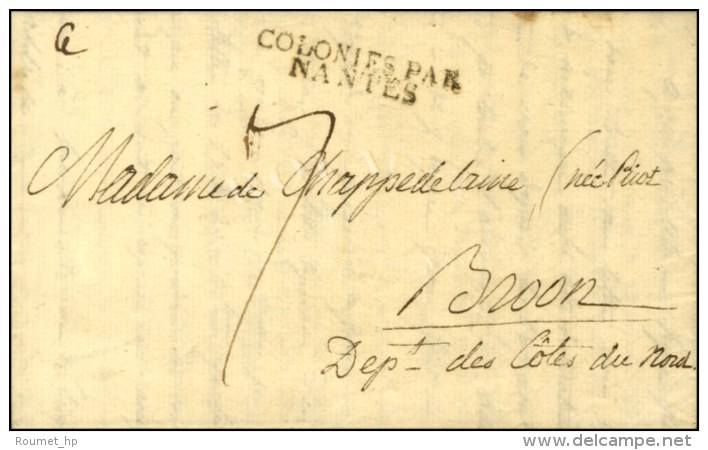 COLONIES PAR
NANTES
7
Madame de Chappedelaine (née Piot
Broon
Dept des Côtes du Nord.
Roumet_hp
delcampe.net